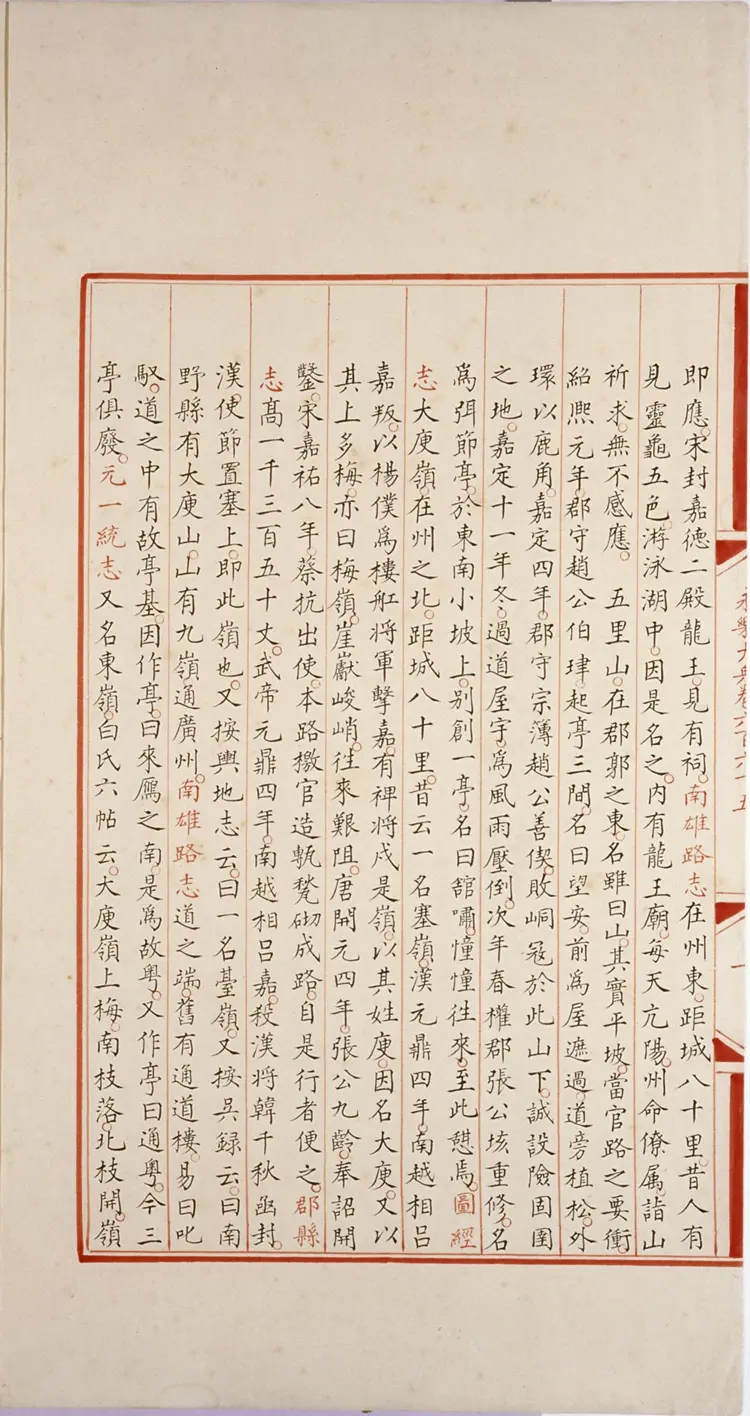 永樂大典卷六百六十五
一
即應宋封嘉德二殿龍王見有祠南雄路志在州東距城八十里昔人有
見靈龜五色游泳湖中因是名之内有龍王廟每天亢陽州命僚属詣山
祈求無不感應　五里山在郡郭之東名雖曰山其實平坡當官路之要衝
紹熈元年郡守趙公伯珒起亭三間名曰望安前爲屋遮過道旁植松外
環以鹿角嘉定四年郡守宗簿趙公善偰敗峒冦於此山下誠設險固圉
之地嘉定十一年冬過道屋宇爲風雨壓倒次年春權郡張公垓重修名
爲弭節亭於東南小坡上別創一亭名曰舘嘯憧憧徃來至此憇焉圖經
志大庾嶺在州之北距城八十里昔云一名塞嶺漢元鼎四年南越相吕
嘉叛以楊僕爲樓舡將軍擊嘉有裨將戍是嶺以其姓庾因名大庾又以
其上多梅亦曰梅嶺崖巘峻峭徃來艱阻唐開元四年張公九齡奉詔開
鑿宋嘉祐八年蔡抗出使本路檄官造甎甃砌成路自是行者便之郡縣
志髙一千三百五十丈武帝元鼎四年南越相吕嘉殺漢將韓千秋凾封
漢使節置塞上即此嶺也又按輿地志云曰一名臺嶺又按吴録云曰南
野縣有大庾山山有九嶺通廣州南雄路志道之端舊有通道樓易曰叱
馭道之中有故亭基因作亭曰來鴈之南是爲故粤又作亭曰通粤今三
亭俱廢元一統志又名東嶺白氏六帖云大庾嶺上梅南枝落北枝開嶺